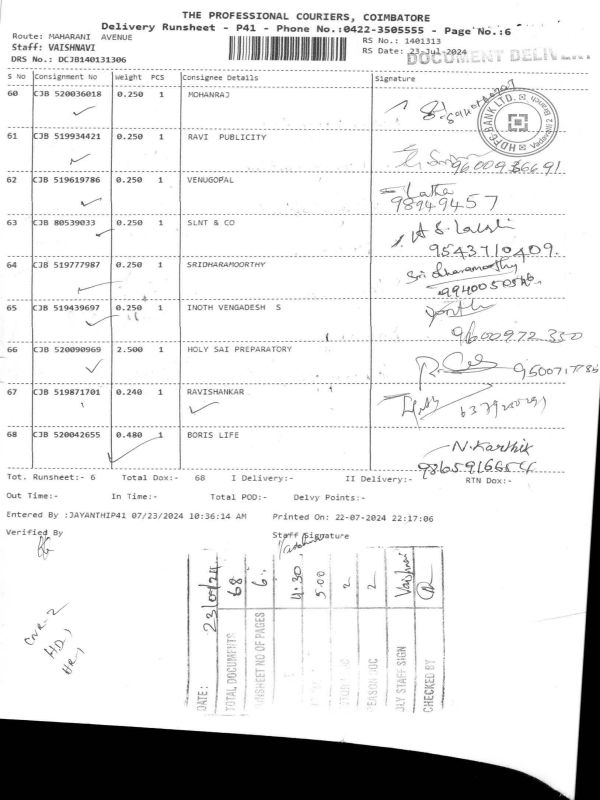 THE PROFESSIONAL COURIERS, COIMBATORE
Delivery Runsheet - P41 - Phone No.:0422-3505555 - Page No.:6
Route: MAHARANI AVENUE
RS No.: 1401313
Staff: VAISHNAVI
RS Date: 23-Jul-2024
DOCUMENT DELIV
DRS No.: DCJB140131306
S No Consignment No Weight PCS Consignee Details Signature
60 CJB 520036018 0.250 1 MOHANRAJ
HDFC BANK LTD.
61 CJB 519934421 0.250 1 RAVI PUBLICITY
62 CJB 519619786 0.250 1 VENUGOPAL Latha
63 CJB 80539033 0.250 1 SLNT & CO
9543710409.
64 CJB 519777987 0.250 1 SRIDHARAMOORTHY Sridharamoorthy
65 CJB 519439697 0.250 1 INOTH VENGADESH S
9600972330
66 CJB 520090969 2.500 1 HOLY SAI PREPARATORY
67 CJB 519871701 0.240 1 RAVISHANKAR
68 CJB 520042655 0.480 1 BORIS LIFE N.Karthik
9865916654
Tot. Runsheet:- 6 Total Dox:- 68 I Delivery:- II Delivery:- RTN Dox:-
Out Time:- In Time:- Total POD:- Delvy Points:-
Entered By :JAYANTHIP41 07/23/2024 10:36:14 AM Printed On: 22-07-2024 22:17:06
Verified By Staff Signature
DATE: 23/07/24
TOTAL DOCUMENTS 68
RUNSHEET NO OF PAGES 6
4:30
5.00
2
REASON DOC 2
DLY STAFF SIGN Vaishnavi
CHECKED BY
CNR-2